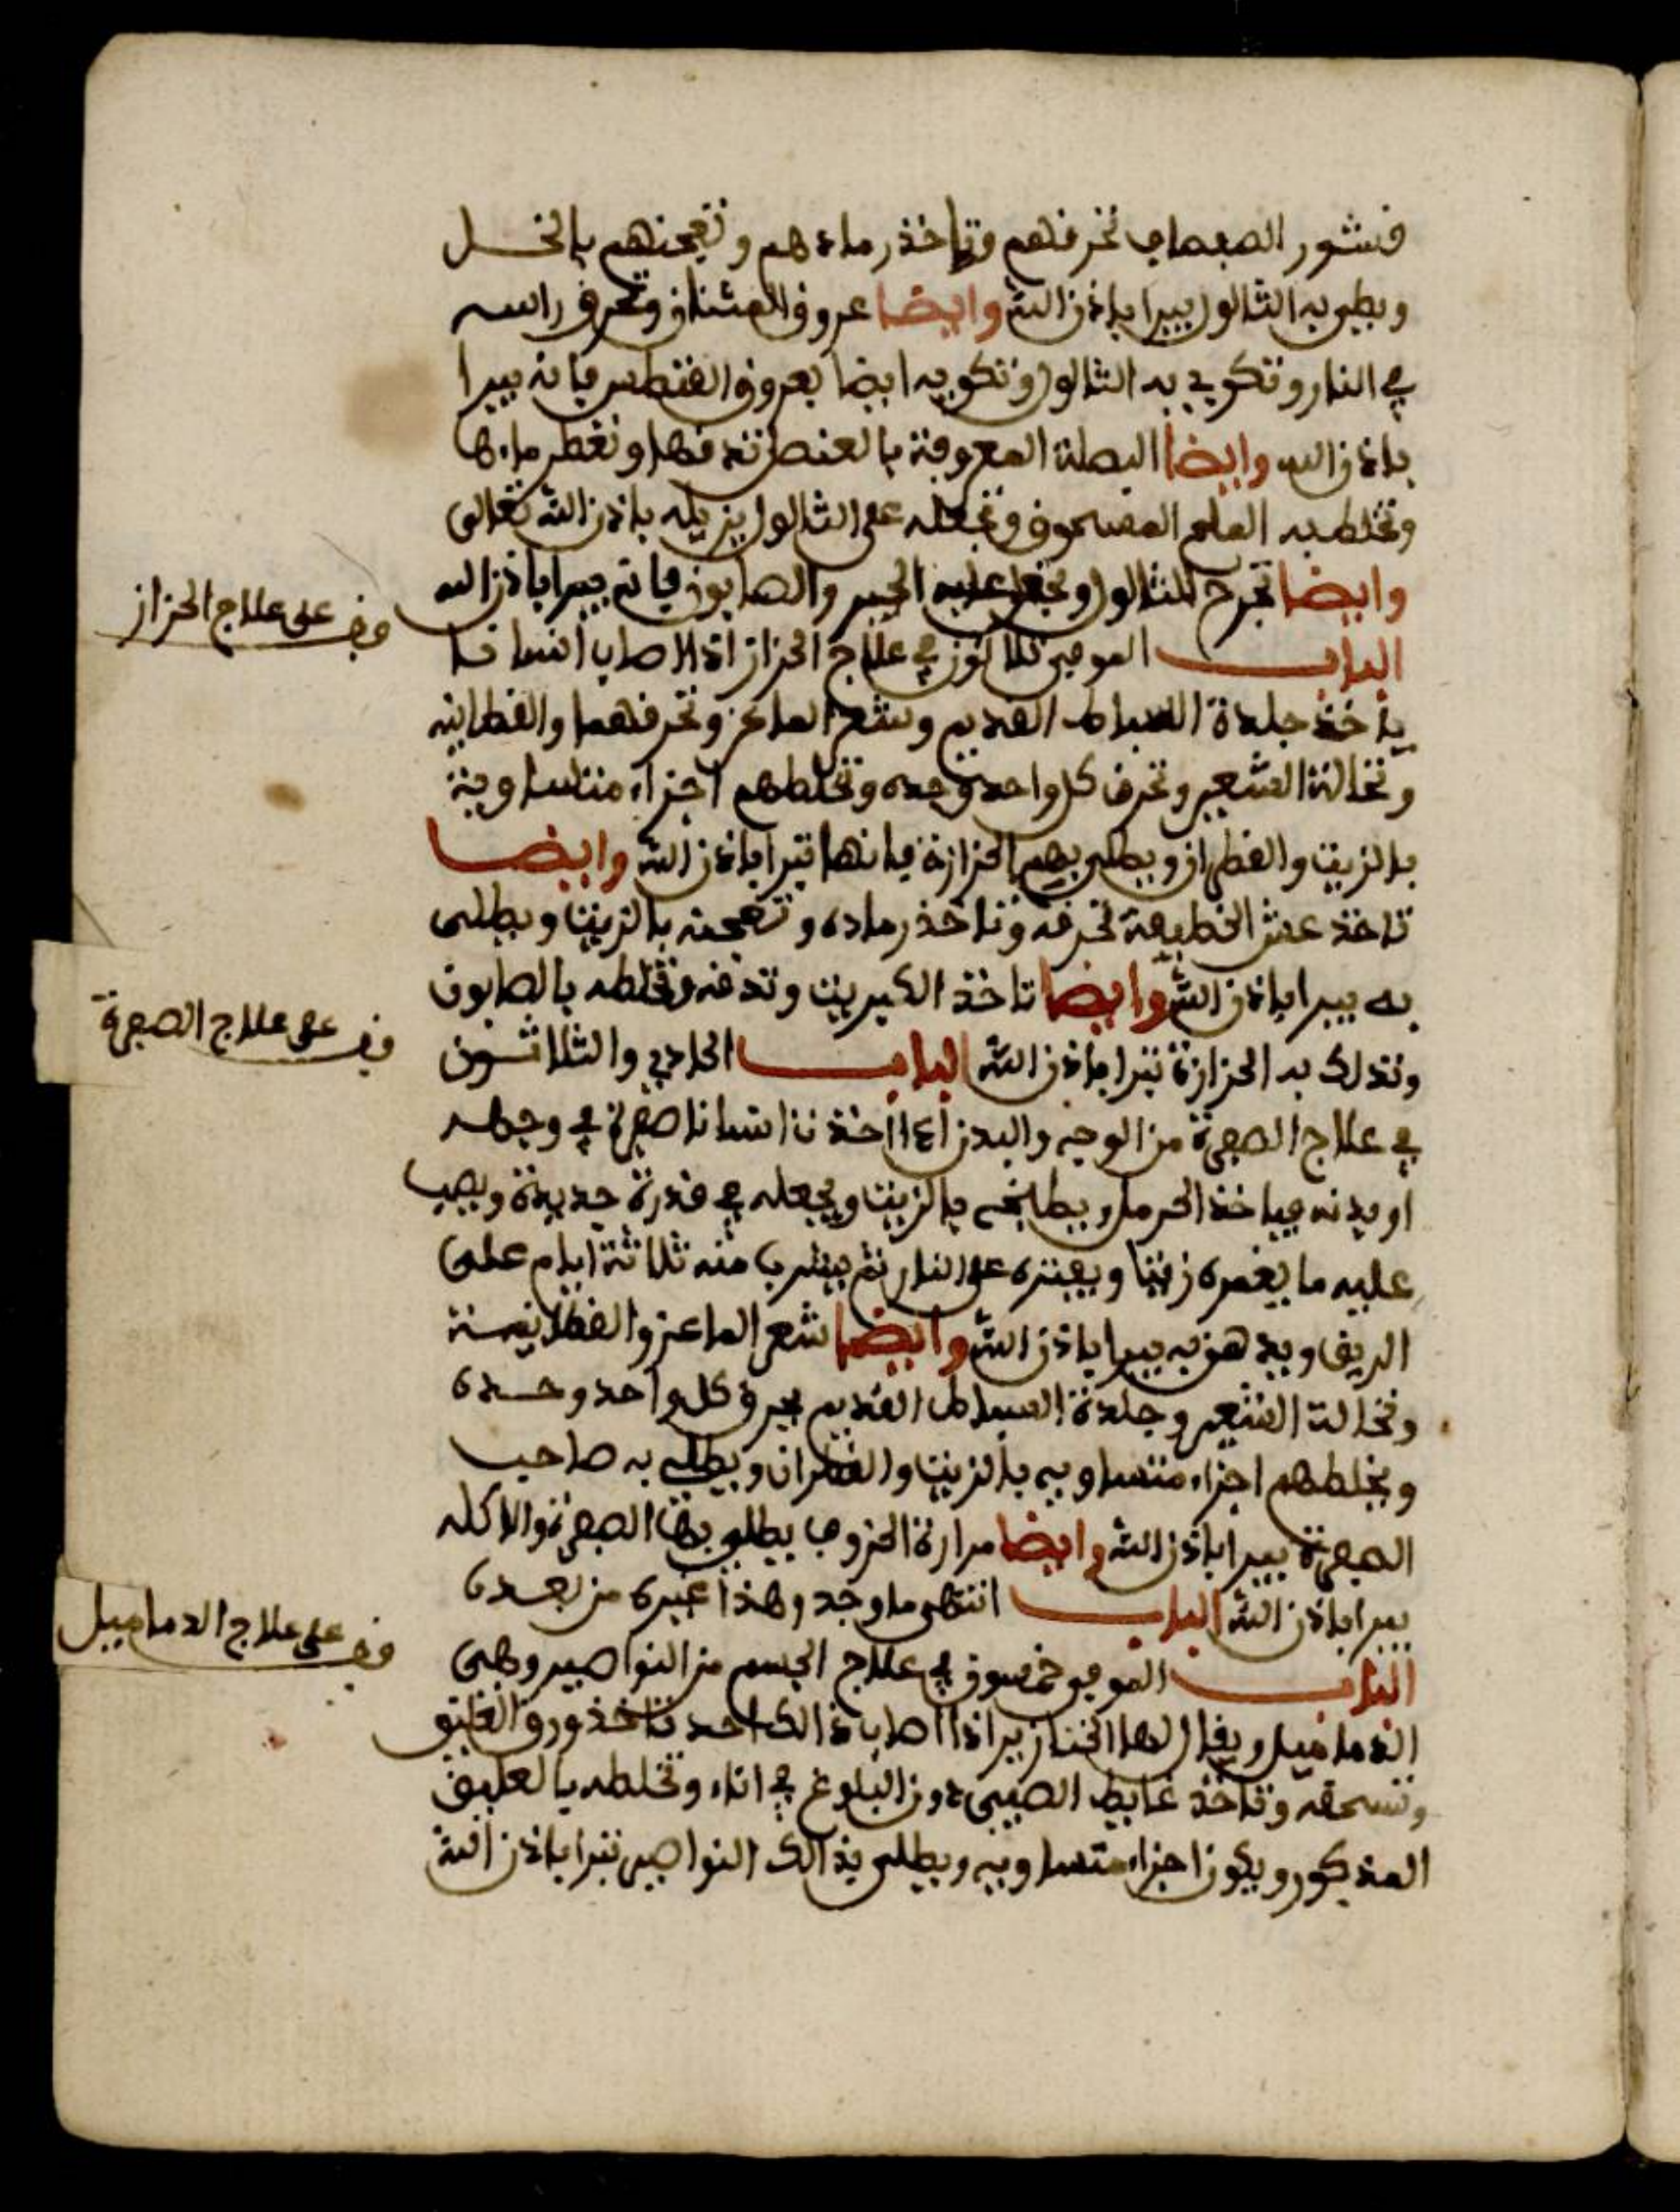 قشور الصفصاف تحرقهم وتاخذ رمادهم وتعجنهم بالخل
ويطلى به الثالول يبرا باذن الله وايضا عروق المشتان وتحرق راسه
في النار وتكوي به الثالول وتكويه ايضا بعروق القنطس فانه يبرا
باذن الله وايضا البصلة المعروفة بالعنصل تدقها وتقطر ماءها
وتخلط به الملح المسحوق وتجعله على الثالول يزيله باذن الله تعالى
وايضا تجرح للثالول وتجعل عليه الجير والصابون فانه يبرا باذن الله
وقف على علاج الحزاز
الباب الموفي ثلاثون في علاج الحزاز اذا اصاب انسانا
ياخذ جلدة السباط القديم وشعر الماعز وتحرقهما والقطانية
ونخالة الشعير وتحرق كل واحد وحده وتخلطهم اجزاء متساوية
بالزيت والقطران ويطلى بهم الحزازة فانها تبرا باذن الله وايضا
تاخذ عش الخطيفة تحرقه وتاخذ رماده وتعجنه بالزيت ويطلى
به يبرا باذن الله وايضا تاخذ الكبريت وتدقه وتخلطه بالصابون
وتدلك به الحزازة تبرا باذن الله الباب الحادي والثلاثون
وقف على علاج الصفرة
في علاج الصفرة من الوجه والبدن اذا اخذت انسانا صفرة في وجهه
او بدنه فياخذ الحرمل ويطبخه بالزيت ويجعله في قدرة جديدة ويصب
عليه ما يغمره زيتا ويفتره على النار ثم يشرب منه ثلاثة ايام على
الريق ويدهن به يبرا باذن الله وايضا شعر الماعز والقطانية
ونخالة الشعير وجلدة السباط القديم يحرق كل واحد وحده
ويخلطهم اجزاء متساويه بالزيت والقطران ويطلى به صاحب
الصفرة يبرا باذن الله وايضا مرارة الخروف يطلى بها الصفرة والاكله
يبرا باذن الله الباب انتهى ما وجد وهذا غيره من بعده
وقف على علاج الدماميل
الباب الموفي خمسون في علاج الجسم من النواصير وهي
الدماميل ويقال لها الخنازير اذا اصاب ذالك احد تاخذ ورق العليق
وتسحقه وتاخذ غايط الصبي دون البلوغ في اناء وتخلطه بالعليق
المذكور ويكون اجزاء متساويه ويطلى بذالك النواصير تبرا باذن الله